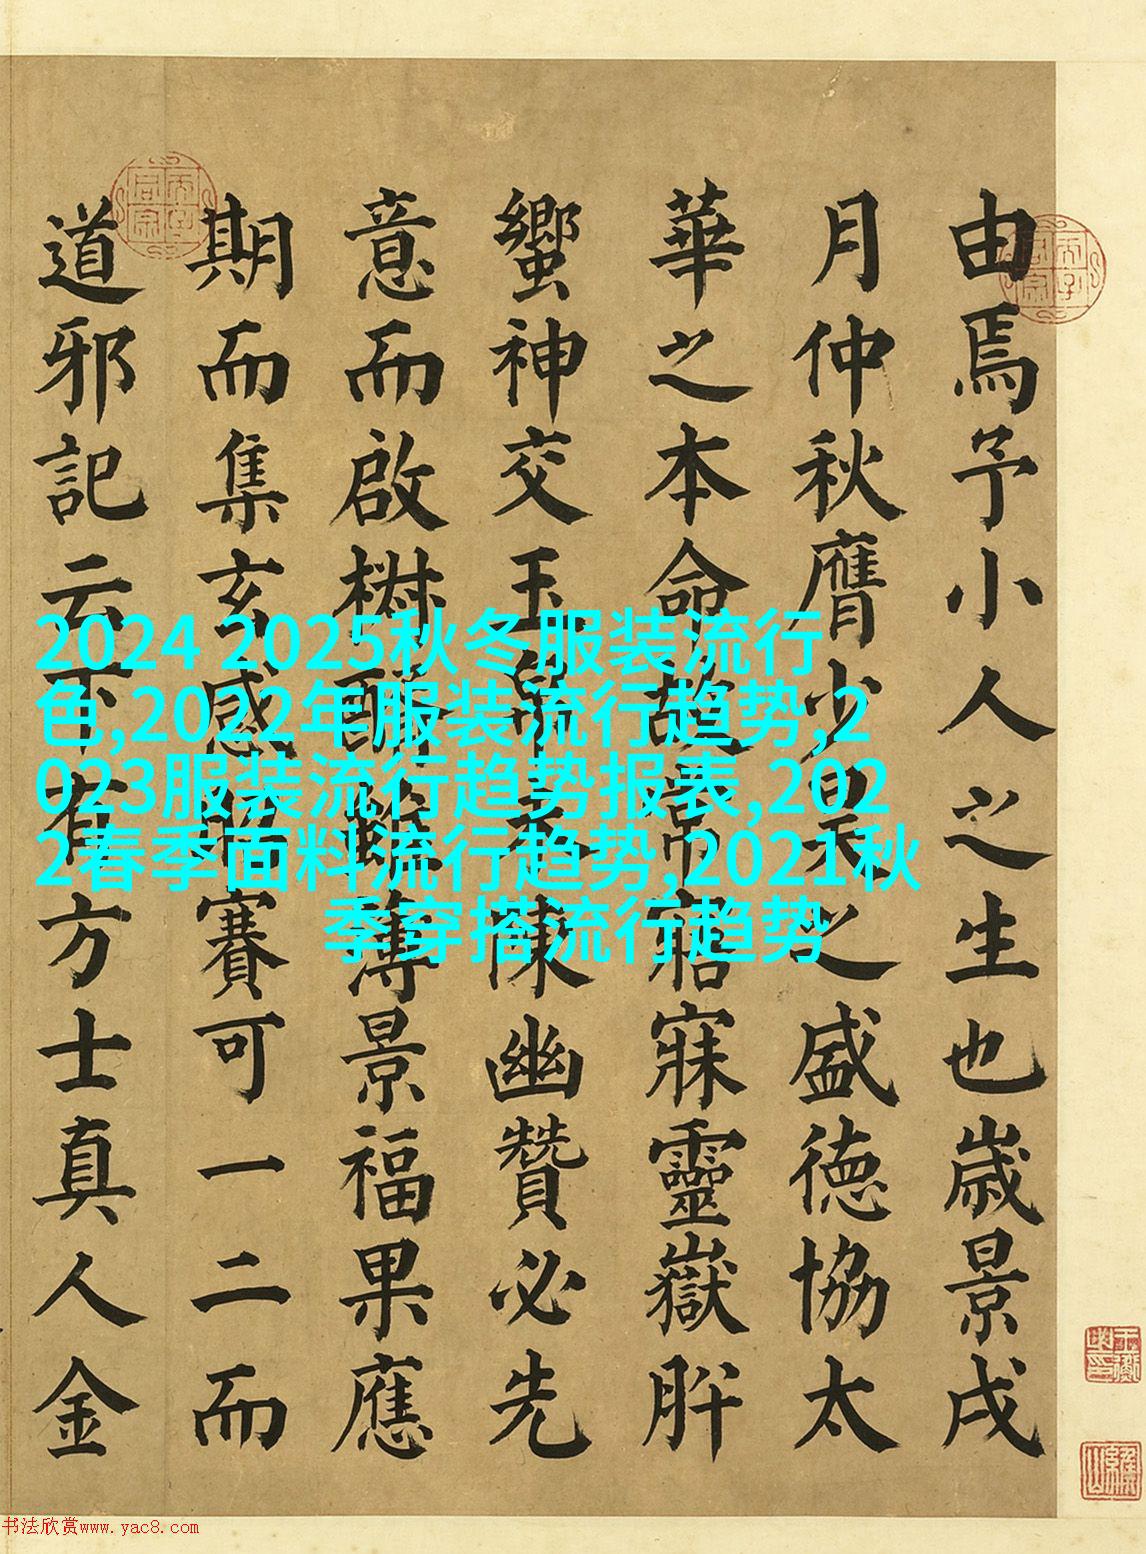 由焉予小人之生也歲景戌
月仲秋膺少昊之盛德協太
華之本命故常寤寐靈嶽肸
蠁神交玉帛未陳幽贊必先
意而啟椒醑雖薄景福果應
期而集玄感昭賽可一二而
道邪記云下有方士真人金
2024 2025秋冬服装流行
色,2022年服装流行趋势,2
023服装流行趋势报表,202
2春季面料流行趋势,2021秋
季穿搭流行趋势
书法欣赏www.yac8.com